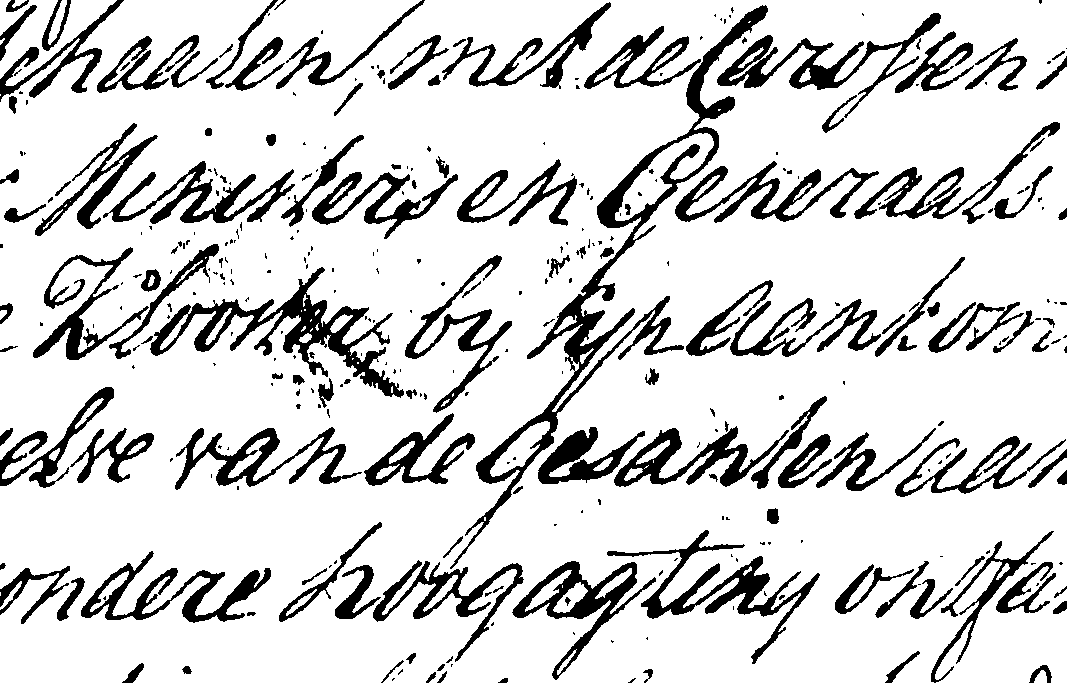 gehaalen, met de Carossen
Ministers en Generaals
Klooster, by sijn aankom
selve van de gesanten aan
sondere hoogagting ontfan